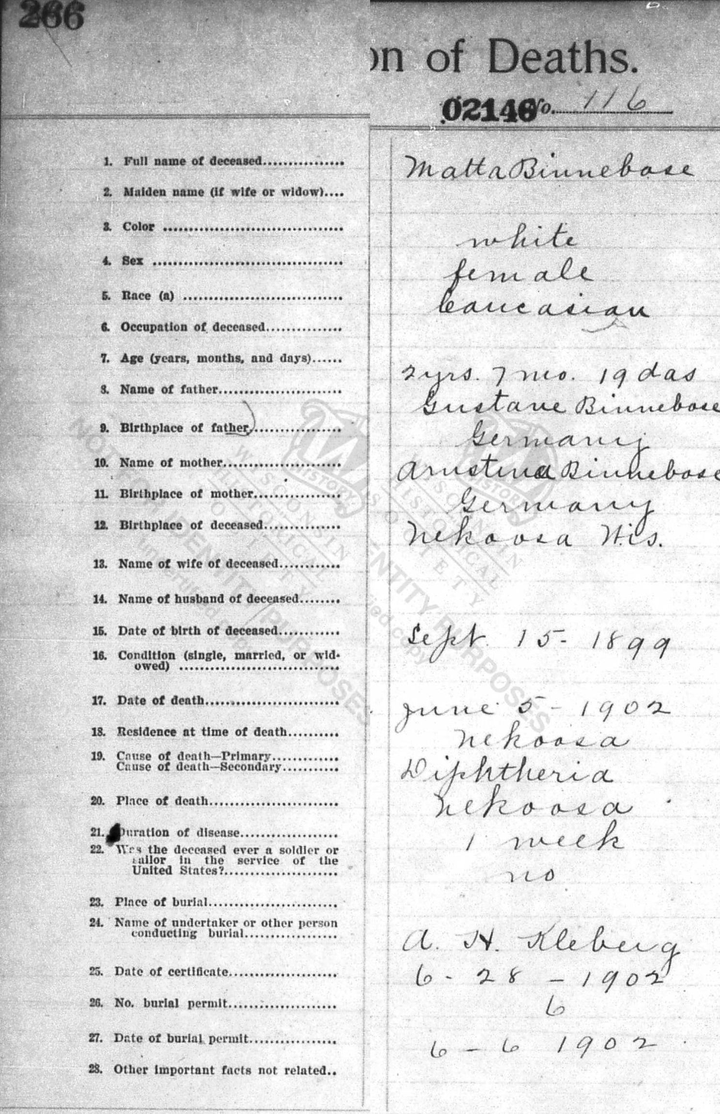 266
on of Deaths.
02146 No. 116
1. Full name of deceased................ Matta Binnebose
2. Maiden name (if wife or widow)....
3. Color ........................................ white
4. Sex ........................................ female
5. Race (a) ................................ Caucasian
6. Occupation of deceased..............
7. Age (years, months, and days)...... 2 yrs. 7 mo. 19 das
8. Name of father......................... Gustave Binnebose
9. Birthplace of father................... Germany
10. Name of mother....................... Binnebose
11. Birthplace of mother................. Germany
12. Birthplace of deceased.............. Nekoosa Wis.
13. Name of wife of deceased...........
14. Name of husband of deceased........
15. Date of birth of deceased............ Sept. 15- 1899
16. Condition (single, married, or wid-
owed) ................................
17. Date of death........................... June 5 - 1902
18. Residence at time of death.......... Nekoosa
19. Cause of death—Primary............
Cause of death—Secondary.......... Diphtheria
20. Place of death.......................... Nekoosa
21. Duration of disease.................... 1 week
22. Was the deceased ever a soldier or
sailor in the service of the
United States?....................... no
23. Place of burial..........................
24. Name of undertaker or other person
conducting burial................... A. H. Kleberg
25. Date of certificate..................... 6 - 28 - 1902
26. No. burial permit...................... 6
27. Date of burial permit................. 6 - 6 1902
28. Other important facts not related..
NOT FOR IDENTITY PURPOSES
uncertified copy
WISCONSIN
HISTORICAL
SOCIETY